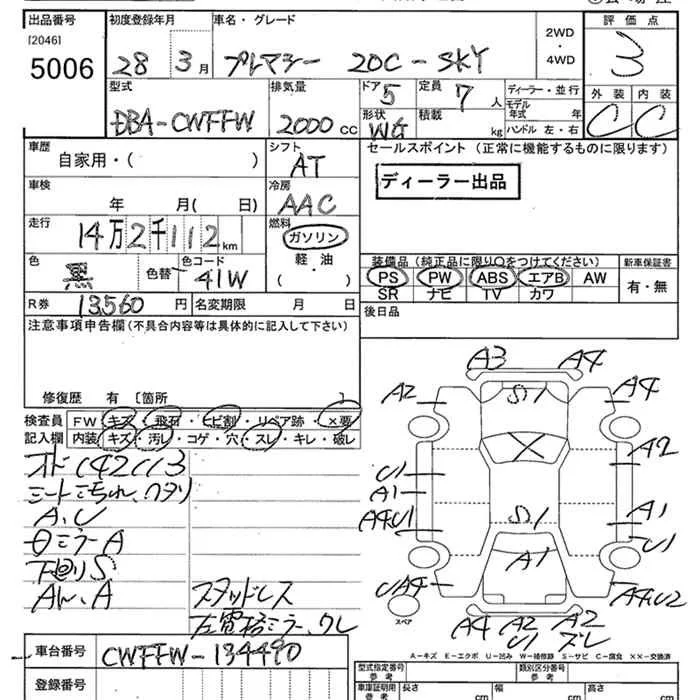 出品番号 初度登録年月 車名・グレード 2WD・4WD 評価点
[2046]
5006 28 3月 プレマシー 20C-SKY 3
型式 排気量 ドア 定員 ディーラー・並行 外装 内装
DBA-CWFFW 2000cc 5 7人 モデル年式 年 C C
形状 WG 積載 kg ハンドル 左・右
車歴 シフト セールスポイント(正常に機能するものに限ります)
自家用・( ) AT ディーラー出品
車検 冷房
年 月( 日) AAC
走行 燃料
14万2千112km ガソリン
色 色替 色コード 軽・油 装備品(純正品に限り○をつけてください) 新車保証書
黒 41W ( ) PS PW ABS エアB AW 有・無
SR ナビ TV カワ
R券 13,560円 名変期限 月 日 後日品
注意事項申告欄(不具合内容等は具体的に記入して下さい)
修復歴 有 [箇所 ]
検査員 FW キズ・飛石・ヒビ割・リペア跡・×要
記入欄 内装 キズ・汚レ・コゲ・穴・スレ・キレ・破レ
A3 A4
A2 S1 A4
A2
オド142113 U1
A1
A4U1 S1 A1
A、U U1
ミラーA A1
下廻りS UA4 A4U2
スタッドレス スペア
A4 A2 U1 A2 ズレ
A-キズ E-エクボ U-凹み W-補修跡 S-サビ C-腐食 ××-交換済
車台番号 CWFFW-134490
型式指定番号 類別区分番号
参考 参考
登録番号 車庫証明用参考 長さ cm 幅 cm 高さ cm